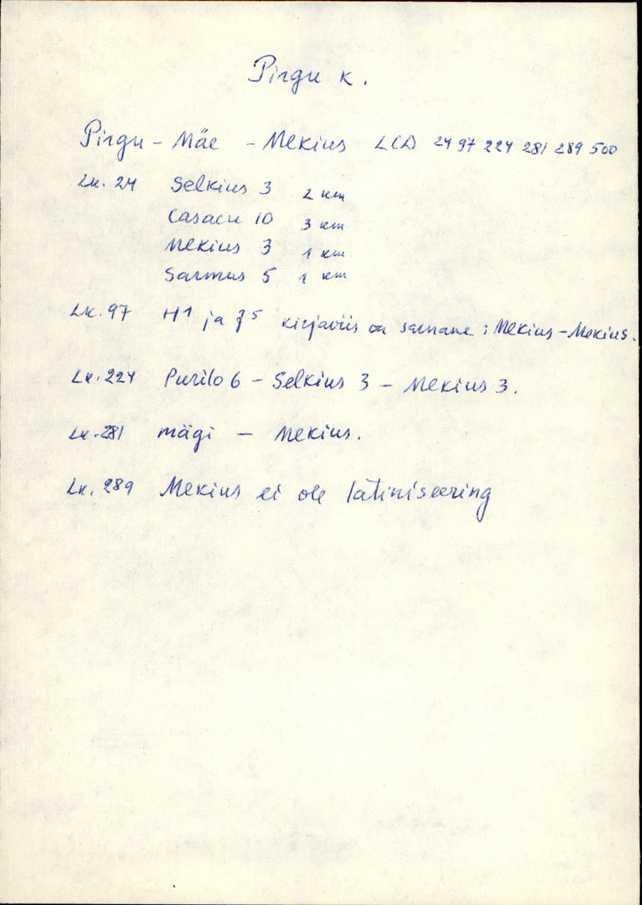 Pirgu k.
Pirgu - Mäe - Mekius LCD 24 97 224 281 289 500
Lk. 24 Selkius 3 2 km
Casacu 10 3 km
Mekius 3 1 km
Sarmus 5 1 km
Lk. 97 H1 ja J5 kirjaviis on samane: Mekius - Mekius.
Lk. 224 Purilo 6 - Selkius 3 - Mekius 3.
Lk. 281 mägi - Mekius.
Lk. 289 Mekius ei ole latiniseering